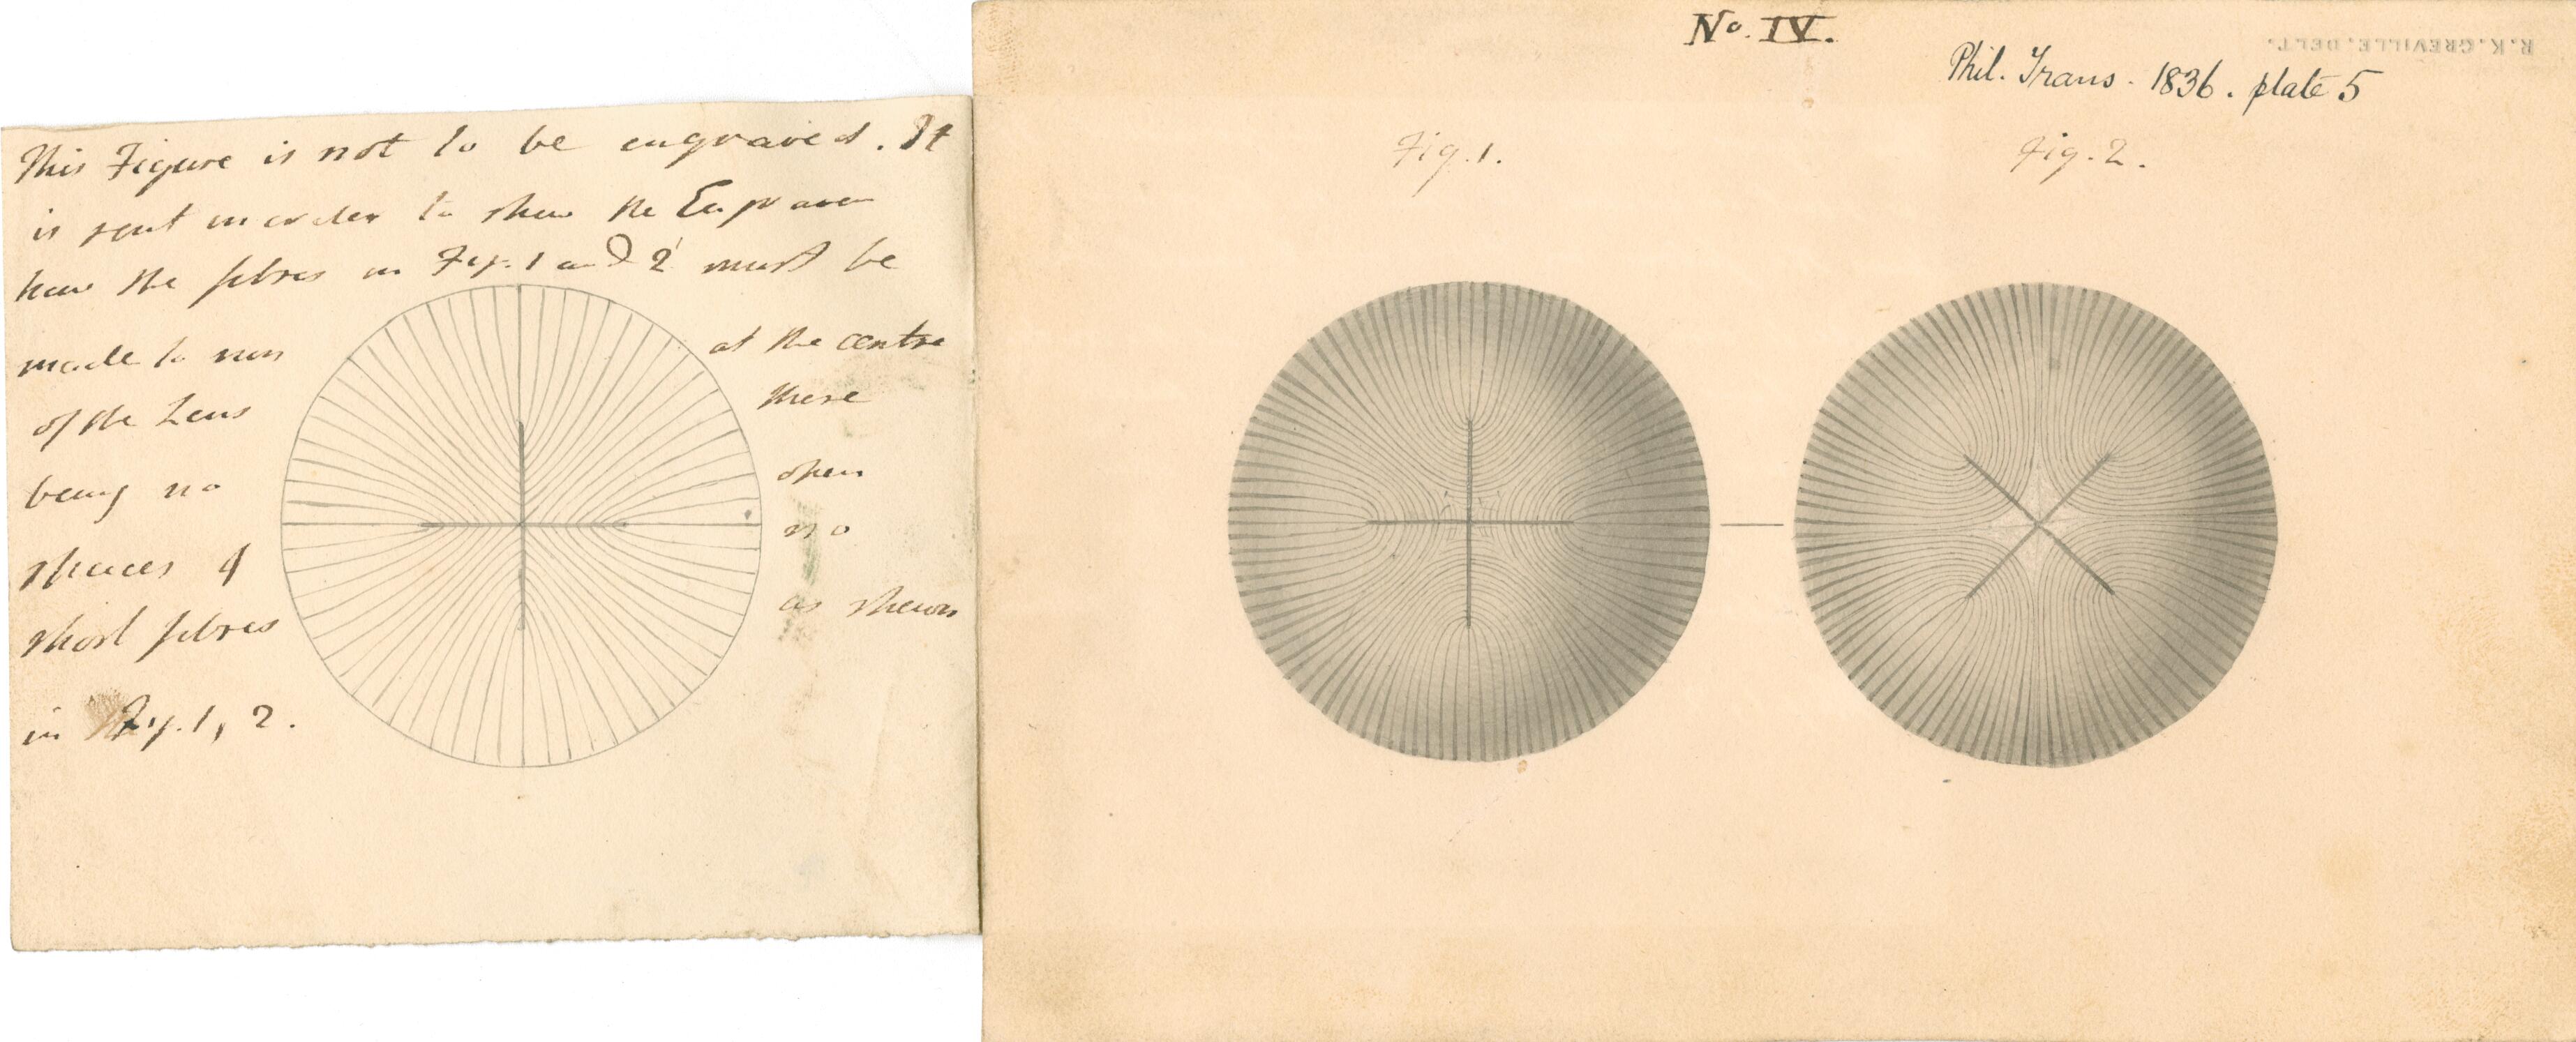 This Figure is not to be engraved. It
is sent in order to shew the Engraver
how the fibres in Fig. 1 and 2 must be
made to run at the centre
of the Lens there
being no open
spaces & no
short fibres as shewn
in Fig. 1, 2.
No. IV.
R.K.GREVILLE, DELT.
Phil. Trans. 1836. plate 5
Fig. 1.
Fig. 2.